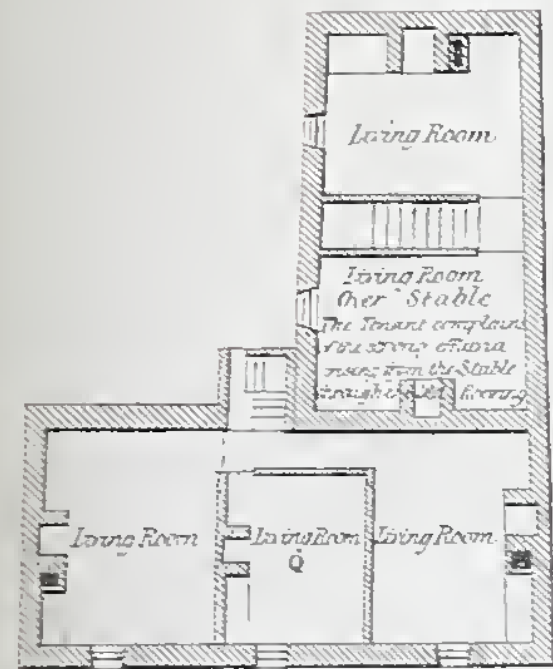 Living Room
Living Room
Over Stable
The Tenant complains
of the strong effluvia
rising from the Stable
through flooring
Living Room
Living Room
Q
Living Room